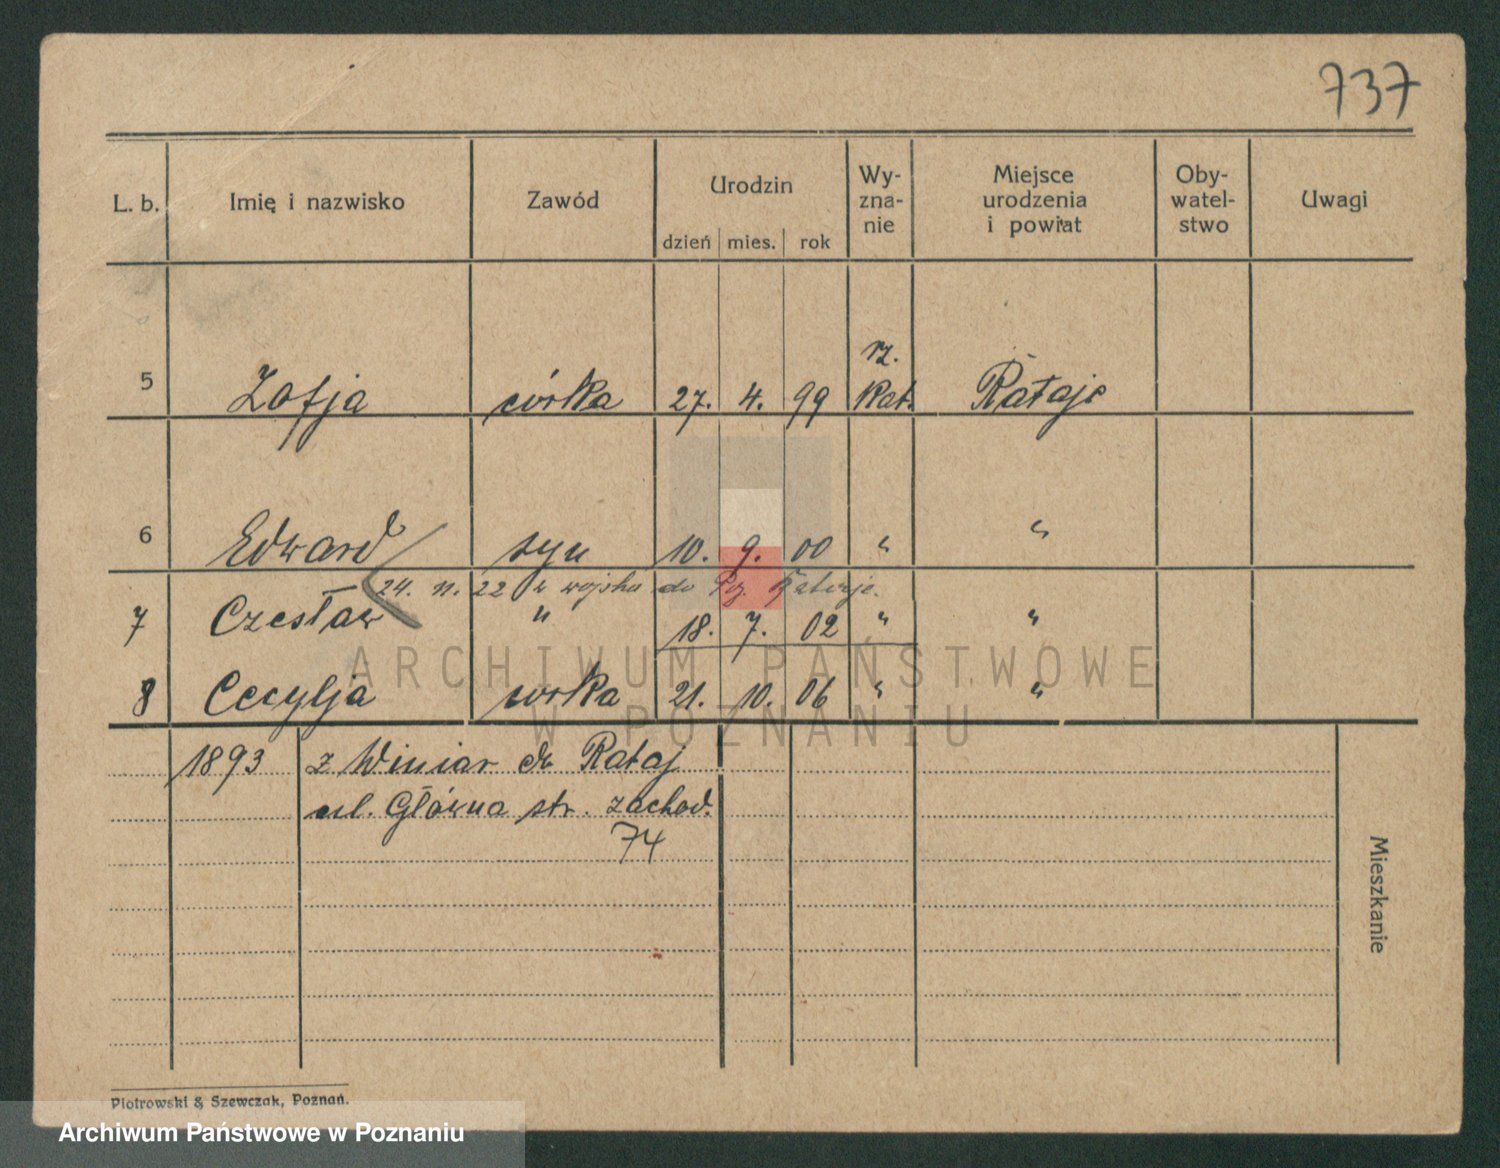 737
L. b. Imię i nazwisko Zawód Urodzin dzień mies. rok Wy-zna-nie Miejsce urodzenia i powiat Oby-watel-stwo Uwagi
5 Zofja córka 27. 4. 99 rz. Kat. Rataje
6 Edward syn 10. 9. 00 " "
24. 11. 22 z wojska do Poz.
7 Czesław " 18. 7. 02 " "
8 Cecylja córka 21. 10. 06 " "
ARCHIWUM PAŃSTWOWE
W POZNANIU
1893 z Winiar do Rataj
ul. Główna str. zachod.
74
Mieszkanie
Piotrowski & Szewczak, Poznań.
Archiwum Państwowe w Poznaniu